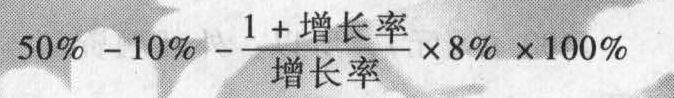 50% - 10% - \frac{1 + 增长率}{增长率} × 8% × 100%